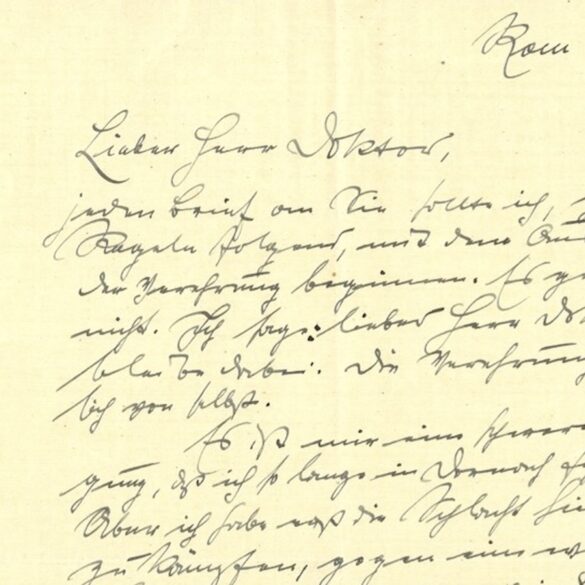 Rom
Lieber Herr Doktor,
jeden Brief an Sie sollte ich,
Regeln folgend, mit dem
der Verehrung beginnen. Es
nicht. Ich sage: lieber Herr
bleibe dabei. Die Verehrung
sich von selbst.
Es ist mir eine schwere
gung, daß ich so lange in Dornach
Aber ich habe erst die Schlacht
zu kämpfen, gegen eine